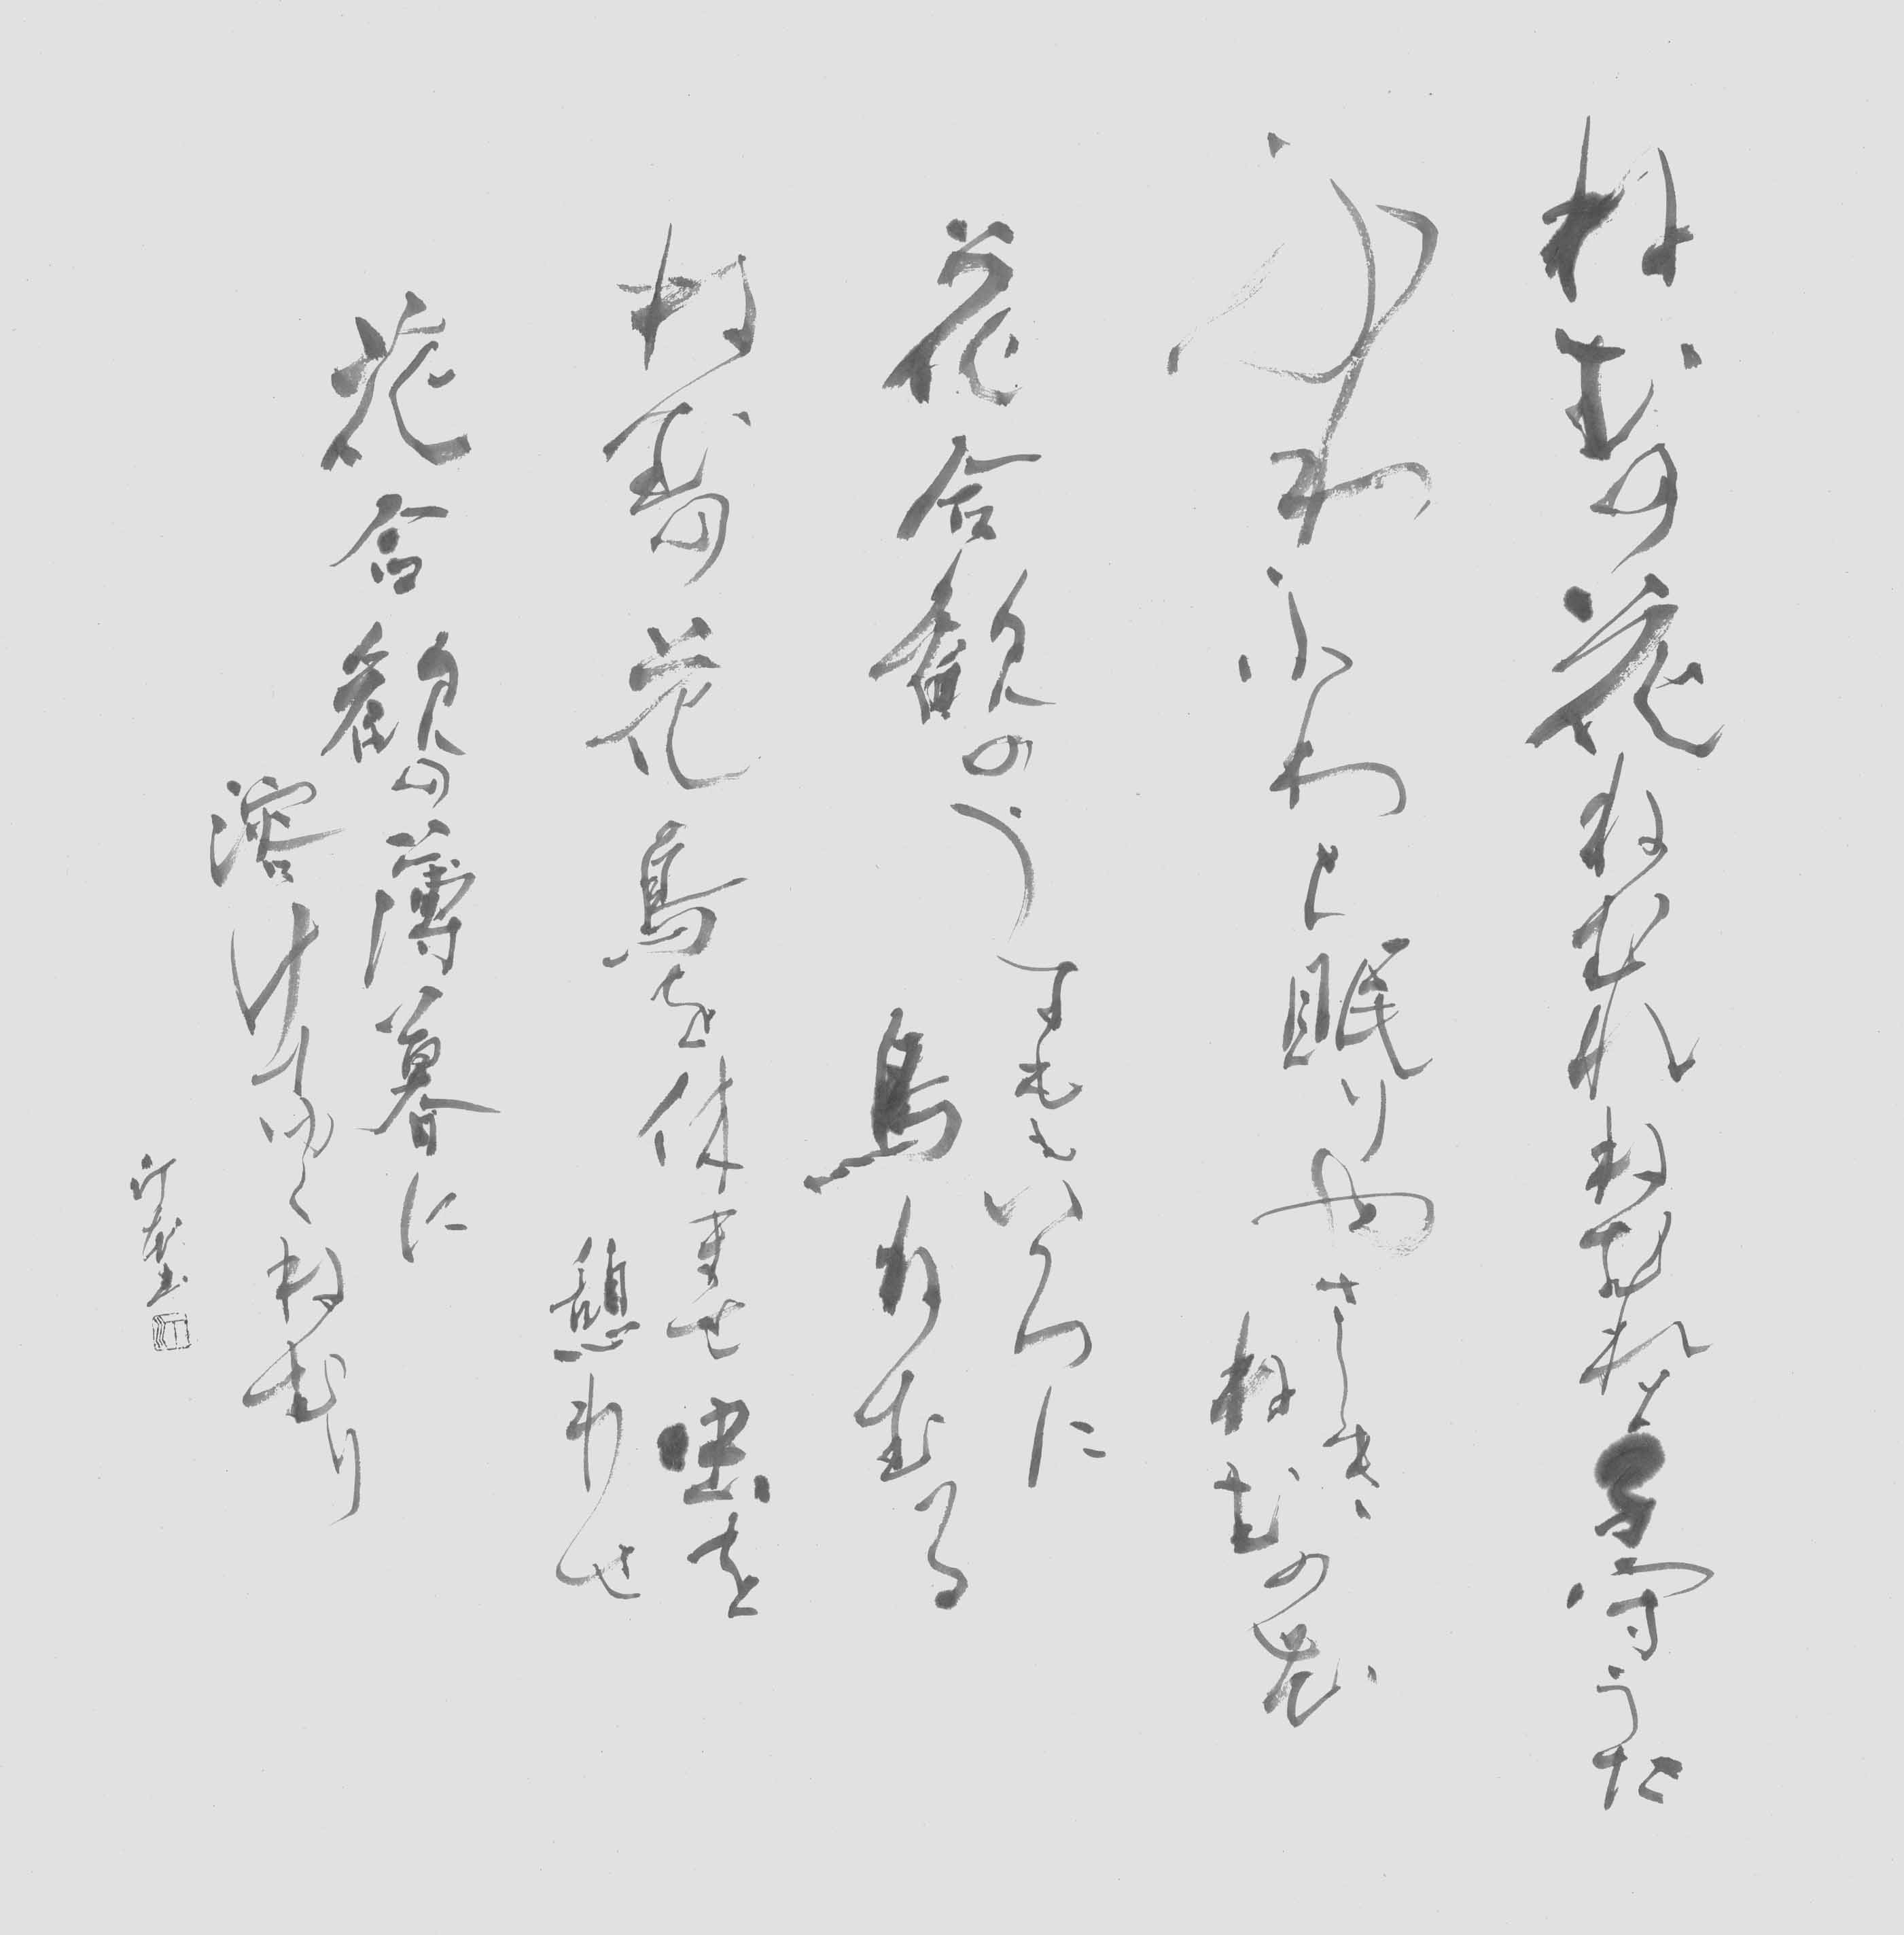 ねむの花ねむれねむれと子守うた
ふわふわと眠りやさしき
ねむの花
花合歓のうすももいろに
鳥ねむる
ねむの花鳥を休ませ虫を
憩わせ
花合歓の薄暮に
溶けてゆくねむり